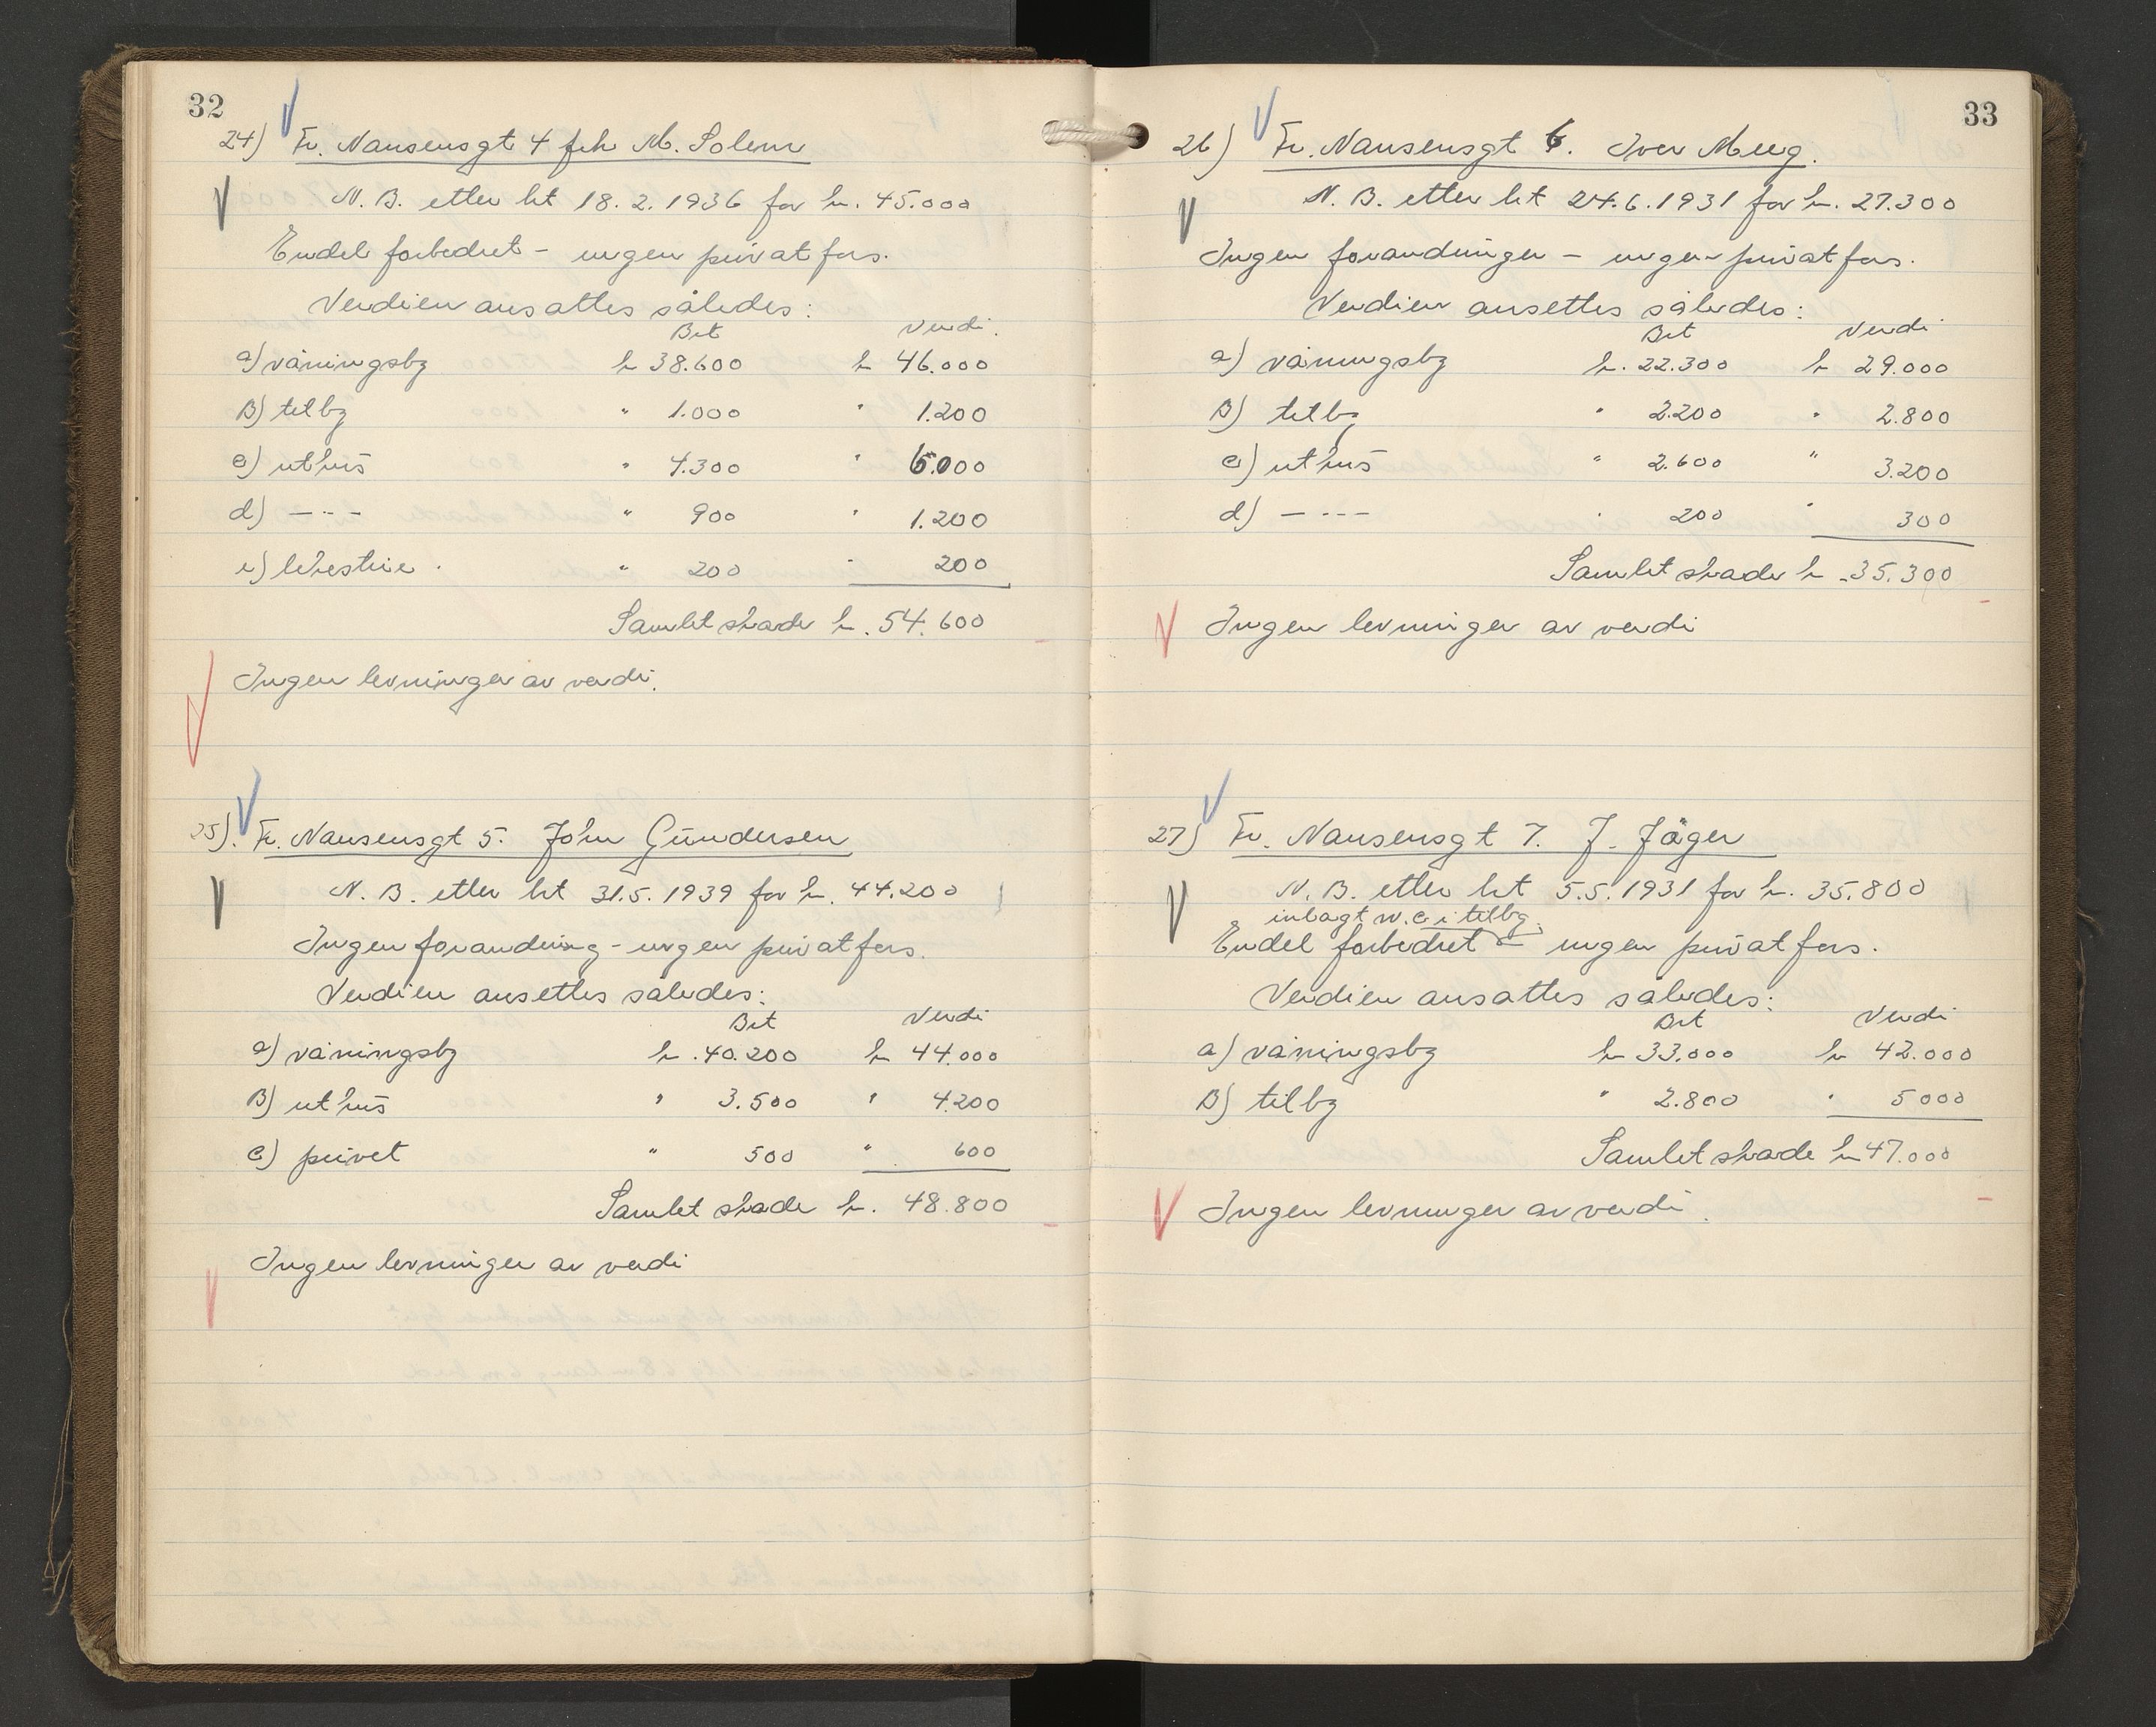 32
24) Fr. Nansensgt 4 frk M. Solem
N. B. etter bet 18. 2. 1936 for kr. 45.000
Endel forbedret - ingen privat fors.
Verdien ansattes således:
Bet Verdi.
a) våningsbg kr 38.600 kr 46.000
B) tilbg " 1.000 " 1.200
c) uthus " 4.300 " 6.000
d) - " - " 900 " 1.200
e) " 200 " 200
Samlet skade kr. 54.600
Ingen levninger av verdi.
25). Fr. Nansensgt 5. John Gundersen
N. B. etter bet 31.5. 1939 for kr. 44.200
Ingen forandring - ingen privat fors.
Verdien ansettes således:
Bet Verdi
a) våningsbg kr. 40.200 kr 44.000
B) uthus " 3.500 " 4.200
c) privet " 500 " 600
Samlet skade kr. 48.800
Ingen levninger av verdi
33
26) Fr. Nansensgt 6. Iver Meeg.
N. B. etter bet 24.6.1931 for kr. 27.300
Ingen forandringer - ingen privat fors.
Verdien ansettes således:
Bet Verdi
a) våningsbg kr. 22.300 kr 29.000
B) tilbg " 2.200 " 2.800
c) uthus " 2.600 " 3.200
d) - " - " 200 " 300
Samlet skade kr 35.300
Ingen levninger av verdi
27) Fr. Nansensgt 7. J. Jäger
N. B. etter bet 5.5. 1931 for kr. 35.800
inlagt w.c. i tilbg.
Endel forbedret - ingen privat fors.
Verdien ansattes således:
Bet Verdi
a) våningsbg kr 33.000 kr 42.000
B) tilbg " 2.800 " 5000
Samlet skade kr 47.000
Ingen levninger av verdi.